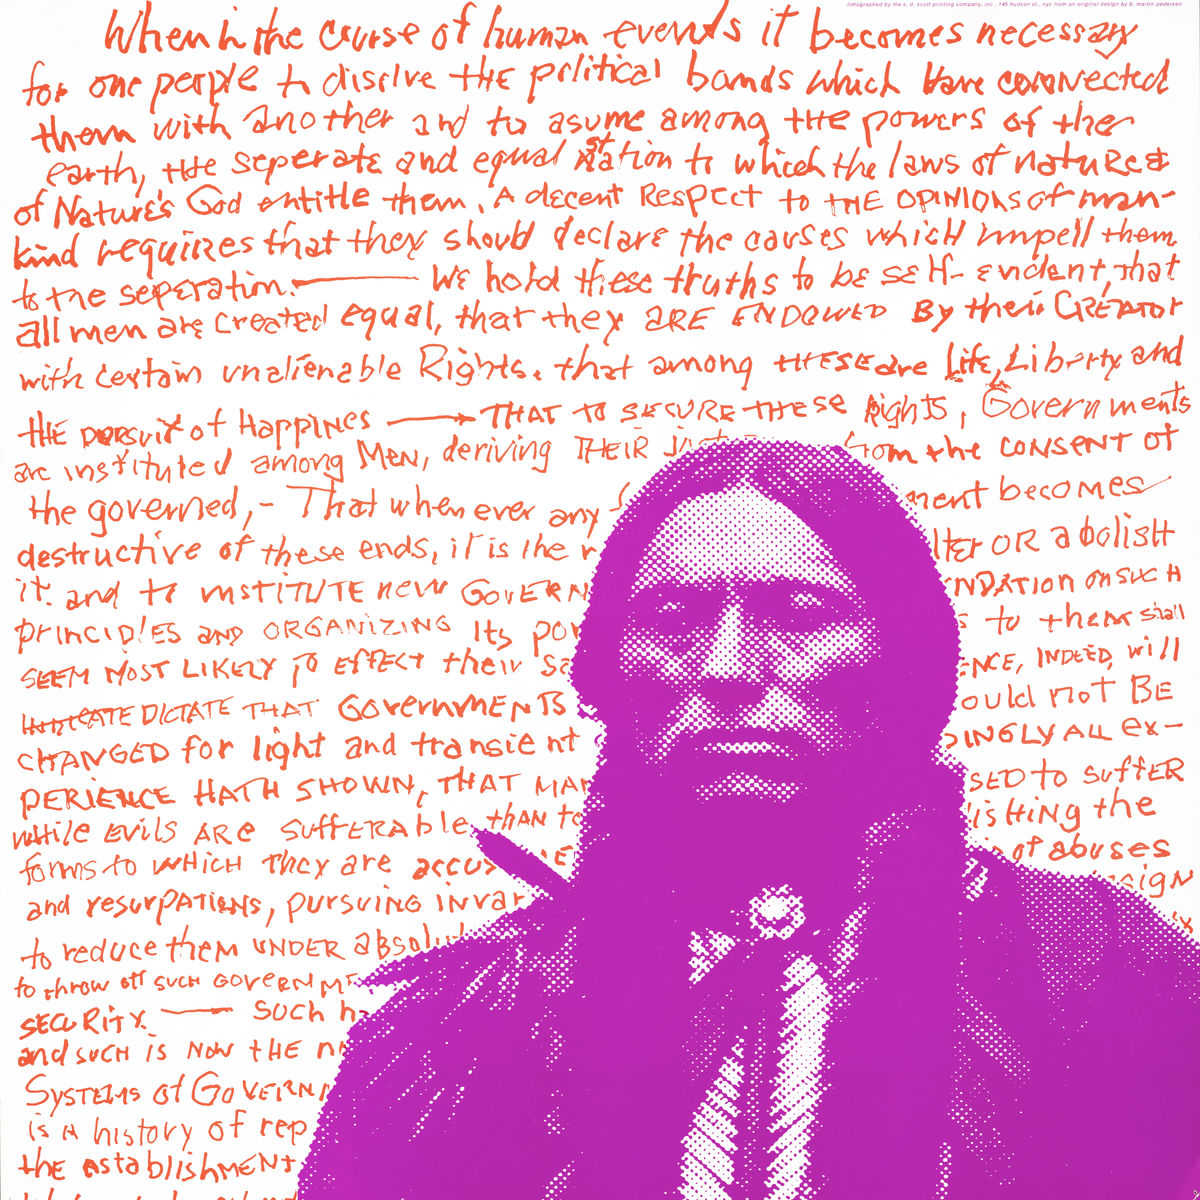 lithographed by the s. d. scott printing company, inc., 145 hudson st., nyc from an original design by b. martin pedersen
When in the course of human events it becomes necessary
for one people to disolve the political bonds which have connected
them with another and to asume among the powers of the
earth, the seperate and equal station to which the laws of nature &
of Nature's God entitle them. A decent Respect to the OPINIONS of man-
kind requires that they should declare the causes which impell them
to the seperation. — We hold these truths to be self-evident, that
all men are created equal, that they are ENDOWED By their CREATOR
with certain unalienable Rights. that among these are life, Liberty and
the pursuit of Happines — THAT TO SECURE THESE Rights, Governments
are instituted among Men, deriving THEIR just from the CONSENT of
the governed, - That when ever any ment becomes
destructive of these ends, it is the r lter OR abolish
it. and to institute new GOVERN NDATION on such
principles AND ORGANIZING Its pow s to them shall
SEEM MOST LIKELY TO EFFECT their sa ENCE, INDEED, will
DICTATE THAT GovernmENTS ould not BE
CHANGED for light and transient DINGLY ALL EX-
PERIENCE HATH SHOWN, THAT MAN SED to SUFFER
while EVILS ARE SUFFERABLE, thAN to ISHING the
forms to WHICH they are accus of abuses
and resurPATIONS, pursuing invar sign
to reduce them UNDER absolut
to throw off such GOVERNME
SECURITY. — SUCH ha
and SUCH is NOW tHE n
SYSTEMS of GOVERNM
is A history of rep
the establishmENT